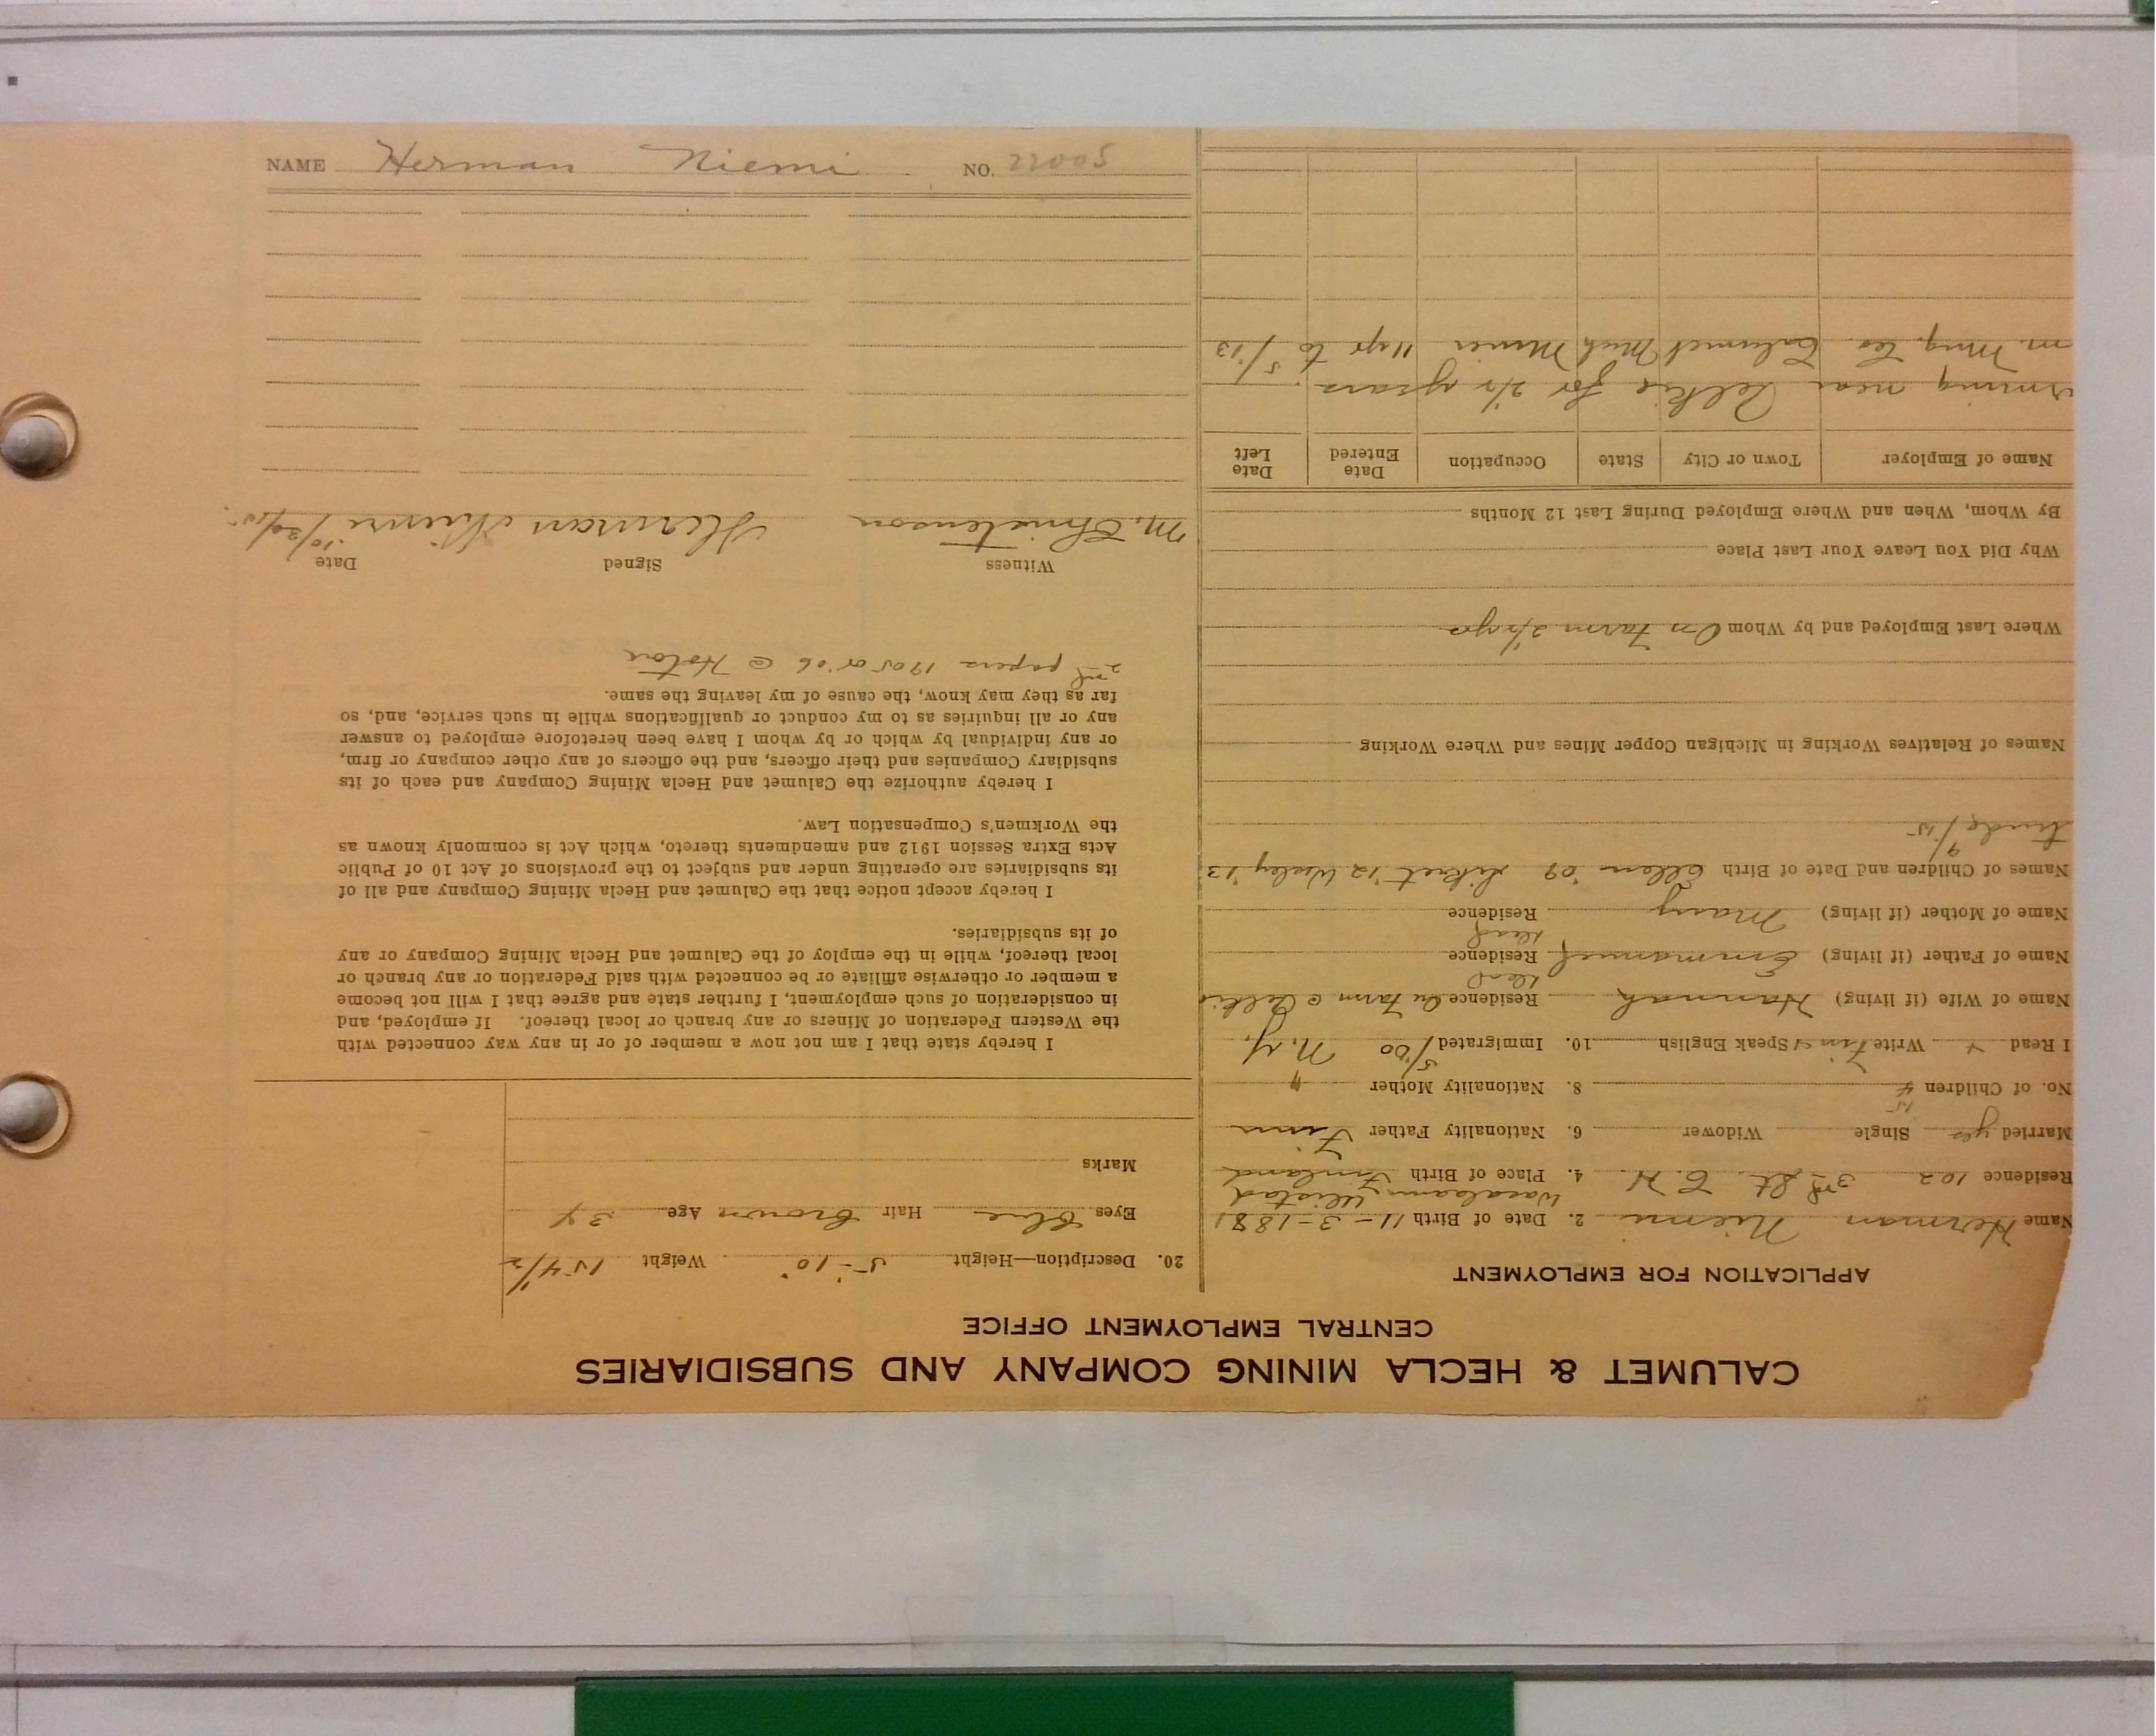 CALUMET & HECLA MINING COMPANY AND SUBSIDIARIES
CENTRAL EMPLOYMENT OFFICE
APPLICATION FOR EMPLOYMENT
Name Herman Niemi 2. Date of Birth 11-3-1881
Residence 102 3rd St. 4. Place of Birth Finland
Married yes Single Widower 6. Nationality Father Finn
No. of Children 4 8. Nationality Mother "
I Read Write Finn Speak English 10. Immigrated 5/'00 N.Y.
Name of Wife (if living) Hannah Residence On Farm @ Pelkie
dead
Name of Father (if living) Emmanuel Residence
dead
Name of Mother (if living) Mary Residence
Names of Children and Date of Birth Ellen '09 '12 Wesley '13
9/15
Names of Relatives Working in Michigan Copper Mines and Where Working
Where Last Employed and by Whom On Farm 2½ yrs
Why Did You Leave Your Last Place
By Whom, When and Where Employed During Last 12 Months
Name of Employer Town or City State Occupation Date Entered Date Left
near Pelkie for 2½ years
Mng. Co. Calumet Mich Miner 11 yr to 5/'13
20. Description—Height 5'-10" Weight 154½
Eyes Blue Hair Brown Age 34
Marks
I hereby state that I am not now a member of or in any way connected with
the Western Federation of Miners or any branch or local thereof. If employed, and
in consideration of such employment, I further state and agree that I will not become
a member or otherwise affiliate or be connected with said Federation or any branch or
local thereof, while in the employ of the Calumet and Hecla Mining Company or any
of its subsidiaries.
I hereby accept notice that the Calumet and Hecla Mining Company and all of
its subsidiaries are operating under and subject to the provisions of Act 10 of Public
Acts Extra Session 1912 and amendments thereto, which Act is commonly known as
the Workmen's Compensation Law.
I hereby authorize the Calumet and Hecla Mining Company and each of its
subsidiary Companies and their officers, and the officers of any other company or firm,
or any individual by which or by whom I have been heretofore employed to answer
any or all inquiries as to my conduct or qualifications while in such service, and, so
far as they may know, the cause of my leaving the same.
2nd papers 1905 or '06 @
Witness Signed Date
M. Christenson Herman Niemi 10/30/15.
NAME Herman Niemi NO. 22005